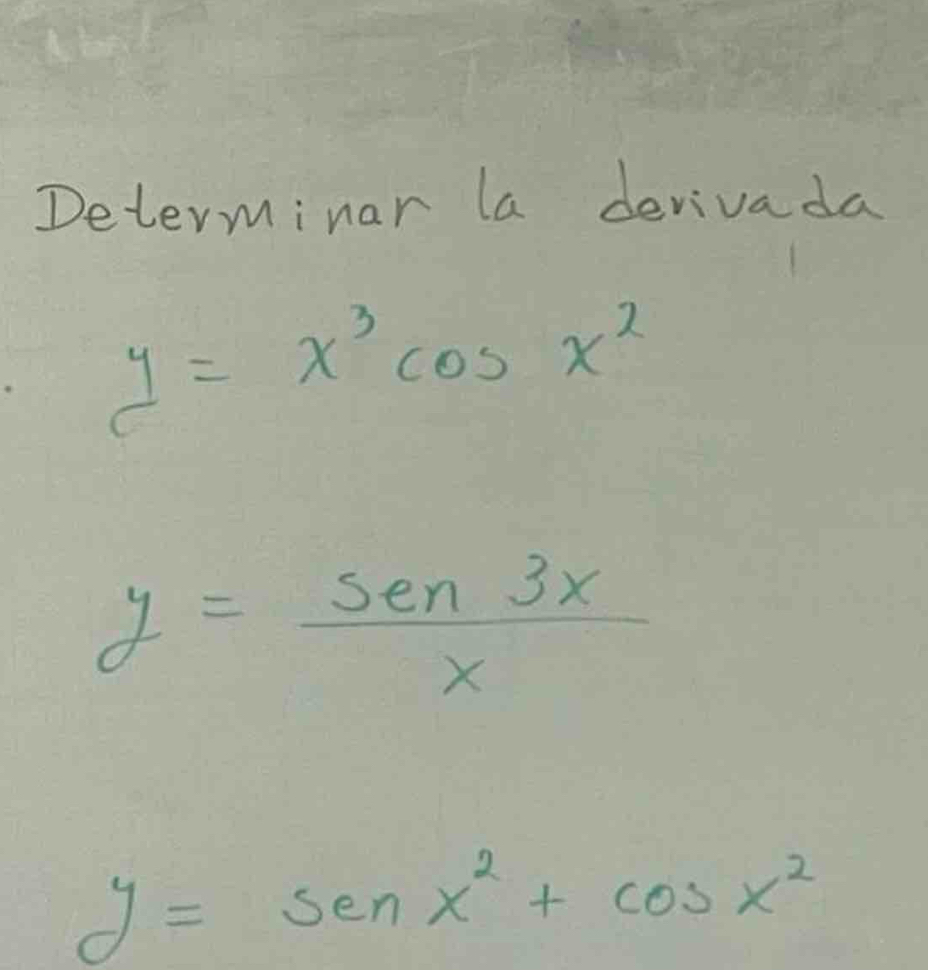 Determinar la derivada
y = x³ cos x²
y = sen 3x / x
y = sen x² + cos x²